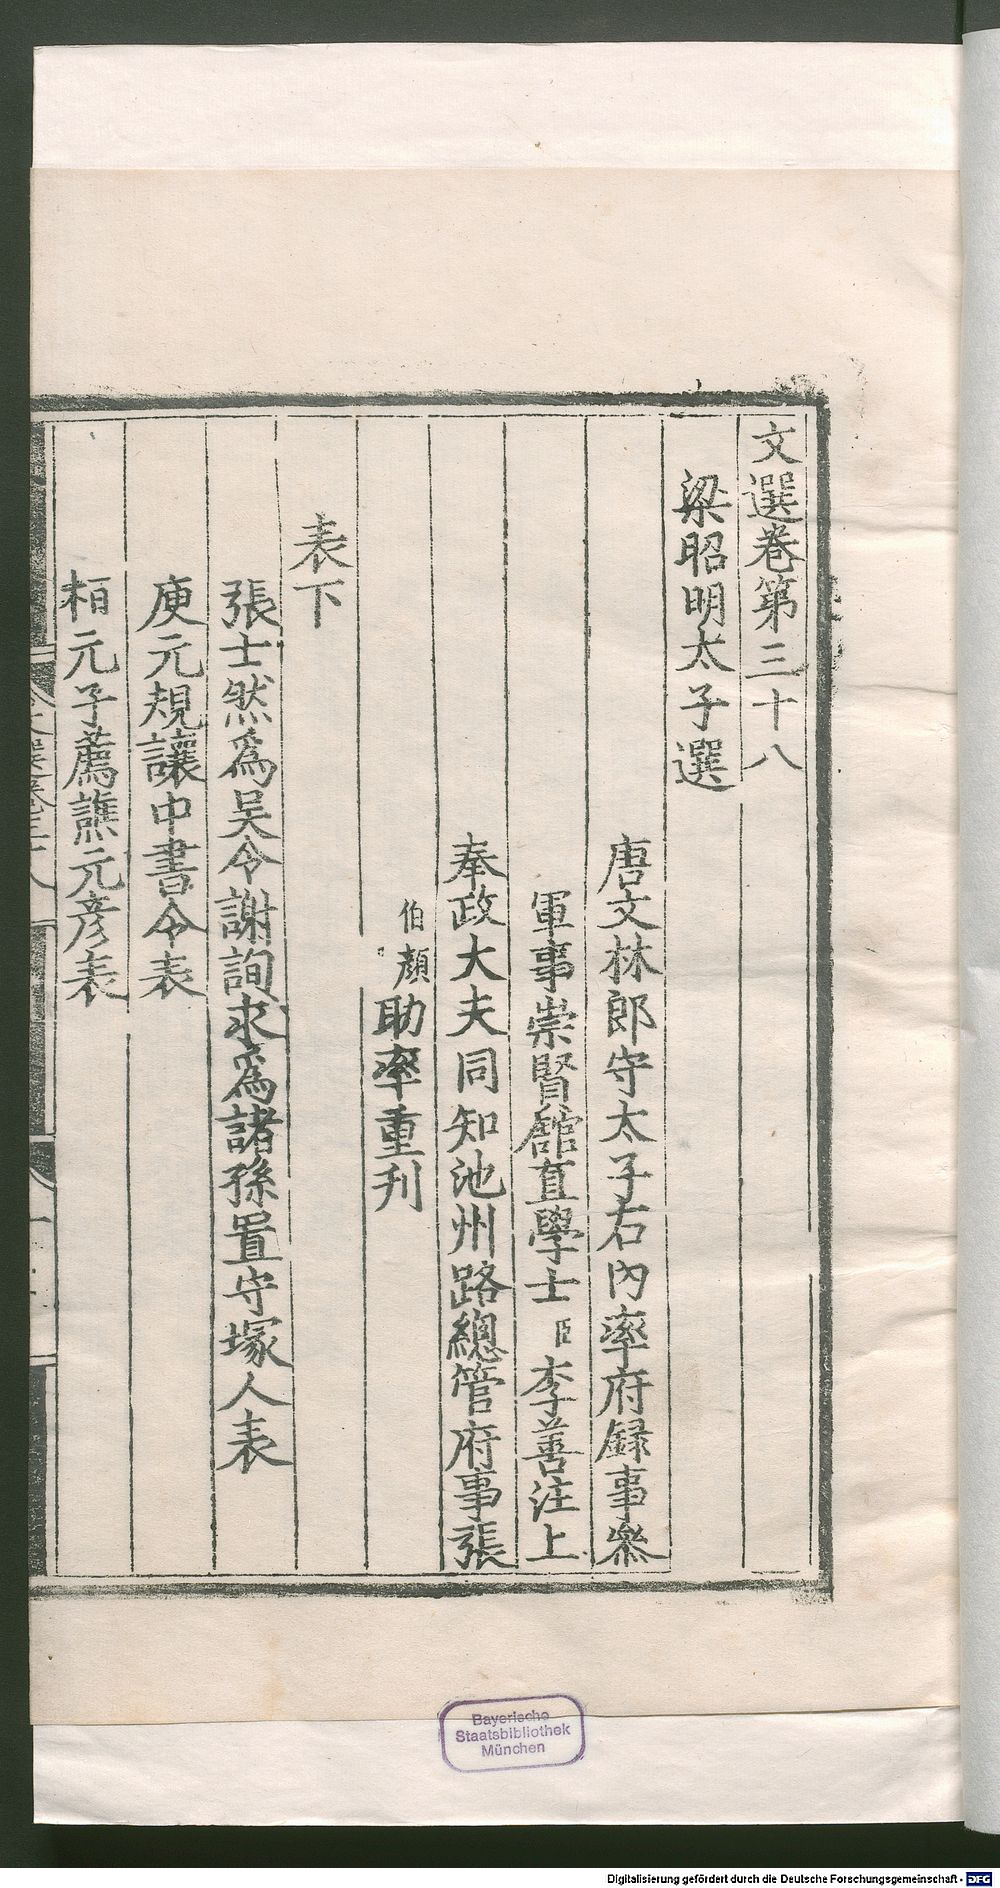 文選卷第三十八
梁昭明太子選
唐文林郎守太子右內率府録事參
軍事崇賢館直學士臣李善注上
奉政大夫同知池州路總管府事張
伯顔助率重刋
表下
張士然爲吴令謝詢求爲諸孫置守塚人表
庾元規讓中書令表
桓元子薦譙元彦表
Bayerische
Staatsbibliothek
München
Digitalisierung gefördert durch die Deutsche Forschungsgemeinschaft - DFG